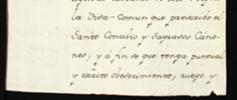 la Vida-Comun que prescribe el
Santo Concilio y Sagrados Cáno-
nes; y á fin de que tenga puntual
y exácto obedecimiento, ruego y